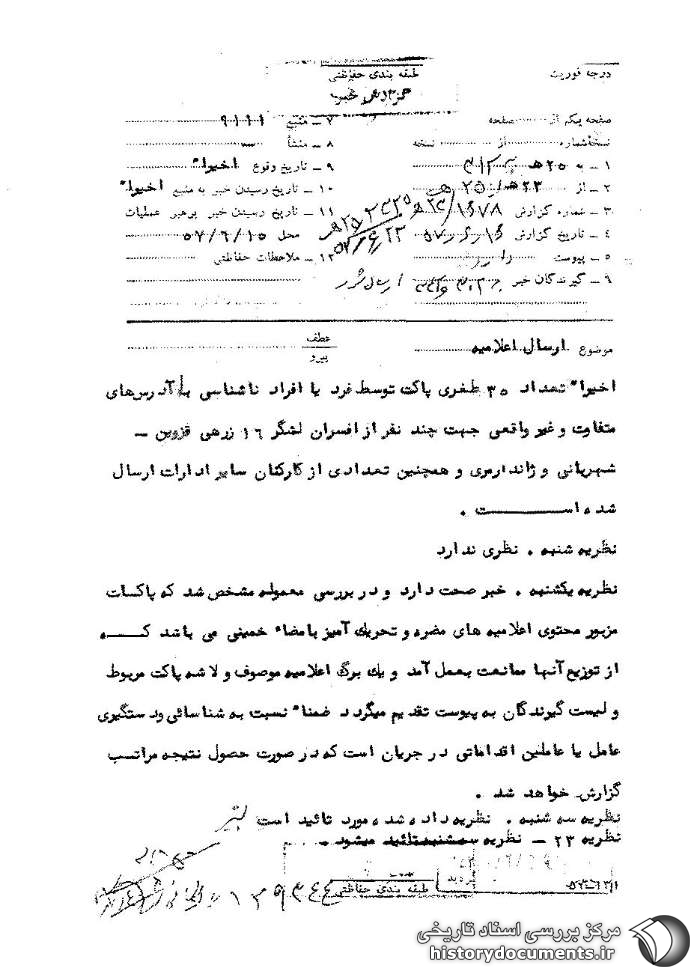 درجه فوریت
طبقه بندی حفاظتی
صفحه یکم از صفحه
نسخه شماره از نسخه
۱ – به ۲۵ هـ ۳۱۲
۲ – از ۲۳هـ/۲۵هـ
۳ – شماره گزارش
۴ – تاریخ گزارش
۵ – پیوست دارد
۶ – گیرندگان خبر
۷ – منبع ۹۱۱۱
۸ – منشأ
۹ – تاریخ وقوع اخیراً
۱۰ – تاریخ رسیدن خبر به منبع اخیراً
۱۱ – تاریخ رسیدن خبر برهبر عملیات
محل ۵۷/۶/۱۵
۱۲ – ملاحظات حفاظتی
موضوع ارسال اعلامیه
عطف
پیرو
اخیراً تعداد ۳۵ طغری پاکت توسط فرد یا افراد ناشناسی با آدرسهای
متفاوت و غیر واقعی جهت چند نفر از افسران لشگر ۱۶ زرهی قزوین –
شهربانی و ژاندارمری و همچنین تعدادی از کارکنان سایر ادارات ارسال
شده است .
نظریه شنبه . نظری ندارد
نظریه یکشنبه . خبر صحت دارد و در بررسی معموله مشخص شد که پاکات
مزبور محتوی اعلامیه های مضره و تحریک آمیز بامضاء خمینی می باشد که
از توزیع آنها ممانعت بعمل آمد و یک برگ اعلامیه موصوف و لاشه پاکت مربوط
و لیست گیرندگان به پیوست تقدیم میگردد ضمناً نسبت به شناسائی و دستگیری
عامل یا عاملین اقداماتی در جریان است که در صورت حصول نتیجه مراتب
گزارش خواهد شد .
نظریه سه شنبه . نظریه داده شده مورد تائید است
نظریه ۲۳ – نظریه سه شنبه تائید میشود .
طبقه بندی حفاظتی
مرکز بررسی اسناد تاریخی
historydocuments.ir